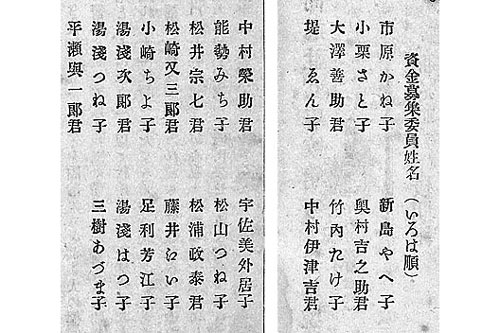 資金募集委員姓名(いろは順)
市原かね子 新島やへ子
小栗さと子 奧村吉之助君
大澤善助君 竹內たけ子
堤ゑん子 中村伊津吉君
中村榮助君 宇佐美外居子
能勢みち子 松山つね子
松井宗七君 松浦政泰君
松崎又三郞君 藤井
小崎ちよ子 足利芳江子
湯淺次郞君 湯淺はつ子
湯淺つね子 三樹あづま子
平瀨與一郞君